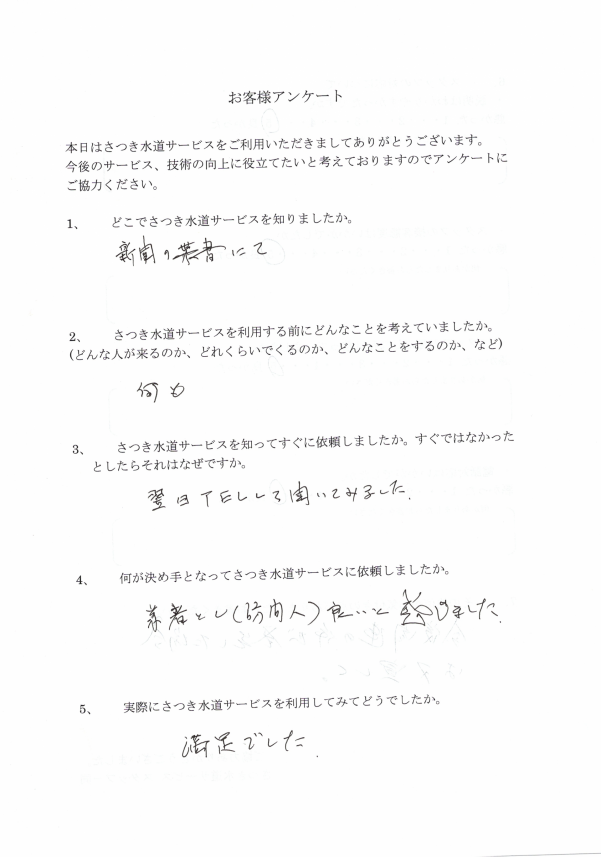 お客様アンケート
本日はさつき水道サービスをご利用いただきましてありがとうございます。
今後のサービス、技術の向上に役立てたいと考えておりますのでアンケートに
ご協力ください。
1、 どこでさつき水道サービスを知りましたか。
新聞の にて
2、 さつき水道サービスを利用する前にどんなことを考えていましたか。
(どんな人が来るのか、どれくらいでくるのか、どんなことをするのか、など)
何も
3、 さつき水道サービスを知ってすぐに依頼しましたか。すぐではなかった
としたらそれはなぜですか。
翌日TELして聞いてみました.
4、 何が決め手となってさつき水道サービスに依頼しましたか。
業者とし(訪問人)良いと きめました.
5、 実際にさつき水道サービスを利用してみてどうでしたか。
満足でした.